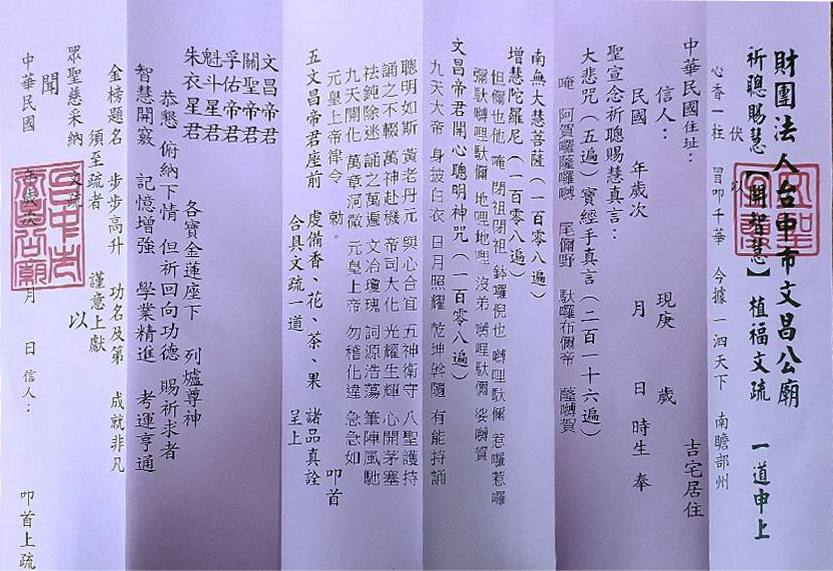 財團法人台中市文昌公廟
祈聰賜慧【開智慧】植福文疏 一道申上
伏以
心香一柱 冒叩千華 今據一泗天下 南瞻部州
中華民國住址： 吉宅居住
信人： 現庚 歲
民國 年歲次 月 日 時生 奉
聖宣念祈聰賜慧真言：
大悲咒（五遍）寶經手真言（二百一十六遍）
唵 阿賀囉薩囉嚩 尾儞野 馱囉布儞帝 薩嚩賀
南無大慧菩薩（一百零八遍）
增慧陀羅尼（一百零八遍）
但儞也他 唵 閉祖閉祖 鉢囉倪也 嚩哩馱儞 惹囉惹囉
彌馱嚩哩馱儞 地哩地哩 沒弟 嚩哩馱儞 娑嚩賀
文昌帝君開心聰明神咒（一百零八遍）
九天大帝 身披白衣 日月照耀 乾坤斡隨 有能持誦
聰明如斯 黃老丹元 與心合宜 五神衛守 八聖護持
誦之不輟 萬神赴機 帝司大化 光耀生輝 心開茅塞
祛鈍除迷 誦之萬遍 文冶瓊瑰 詞源浩蕩 筆陣風馳
九天開化 萬章洞微 元皇上帝 勿稽化違 急急如
元皇上帝律令 勅。
五文昌帝君座前 虔備香、花、茶、果 諸品真詮 叩首
合具文疏一道 呈上
文昌帝君
關聖帝君
孚佑帝君
魁斗星君
朱衣星君
各寶金蓮座下 列爐尊神
恭懇 俯納下情 但祈回向功德 賜祈求者
智慧開竅 記憶增強 學業精進 考運亨通
金榜題名 步步高升 功名及第 成就非凡
須至疏者 謹意上獻
眾聖慈采納 文疏 以
聞
中華民國 年歲次 月 日 信人： 叩首上疏